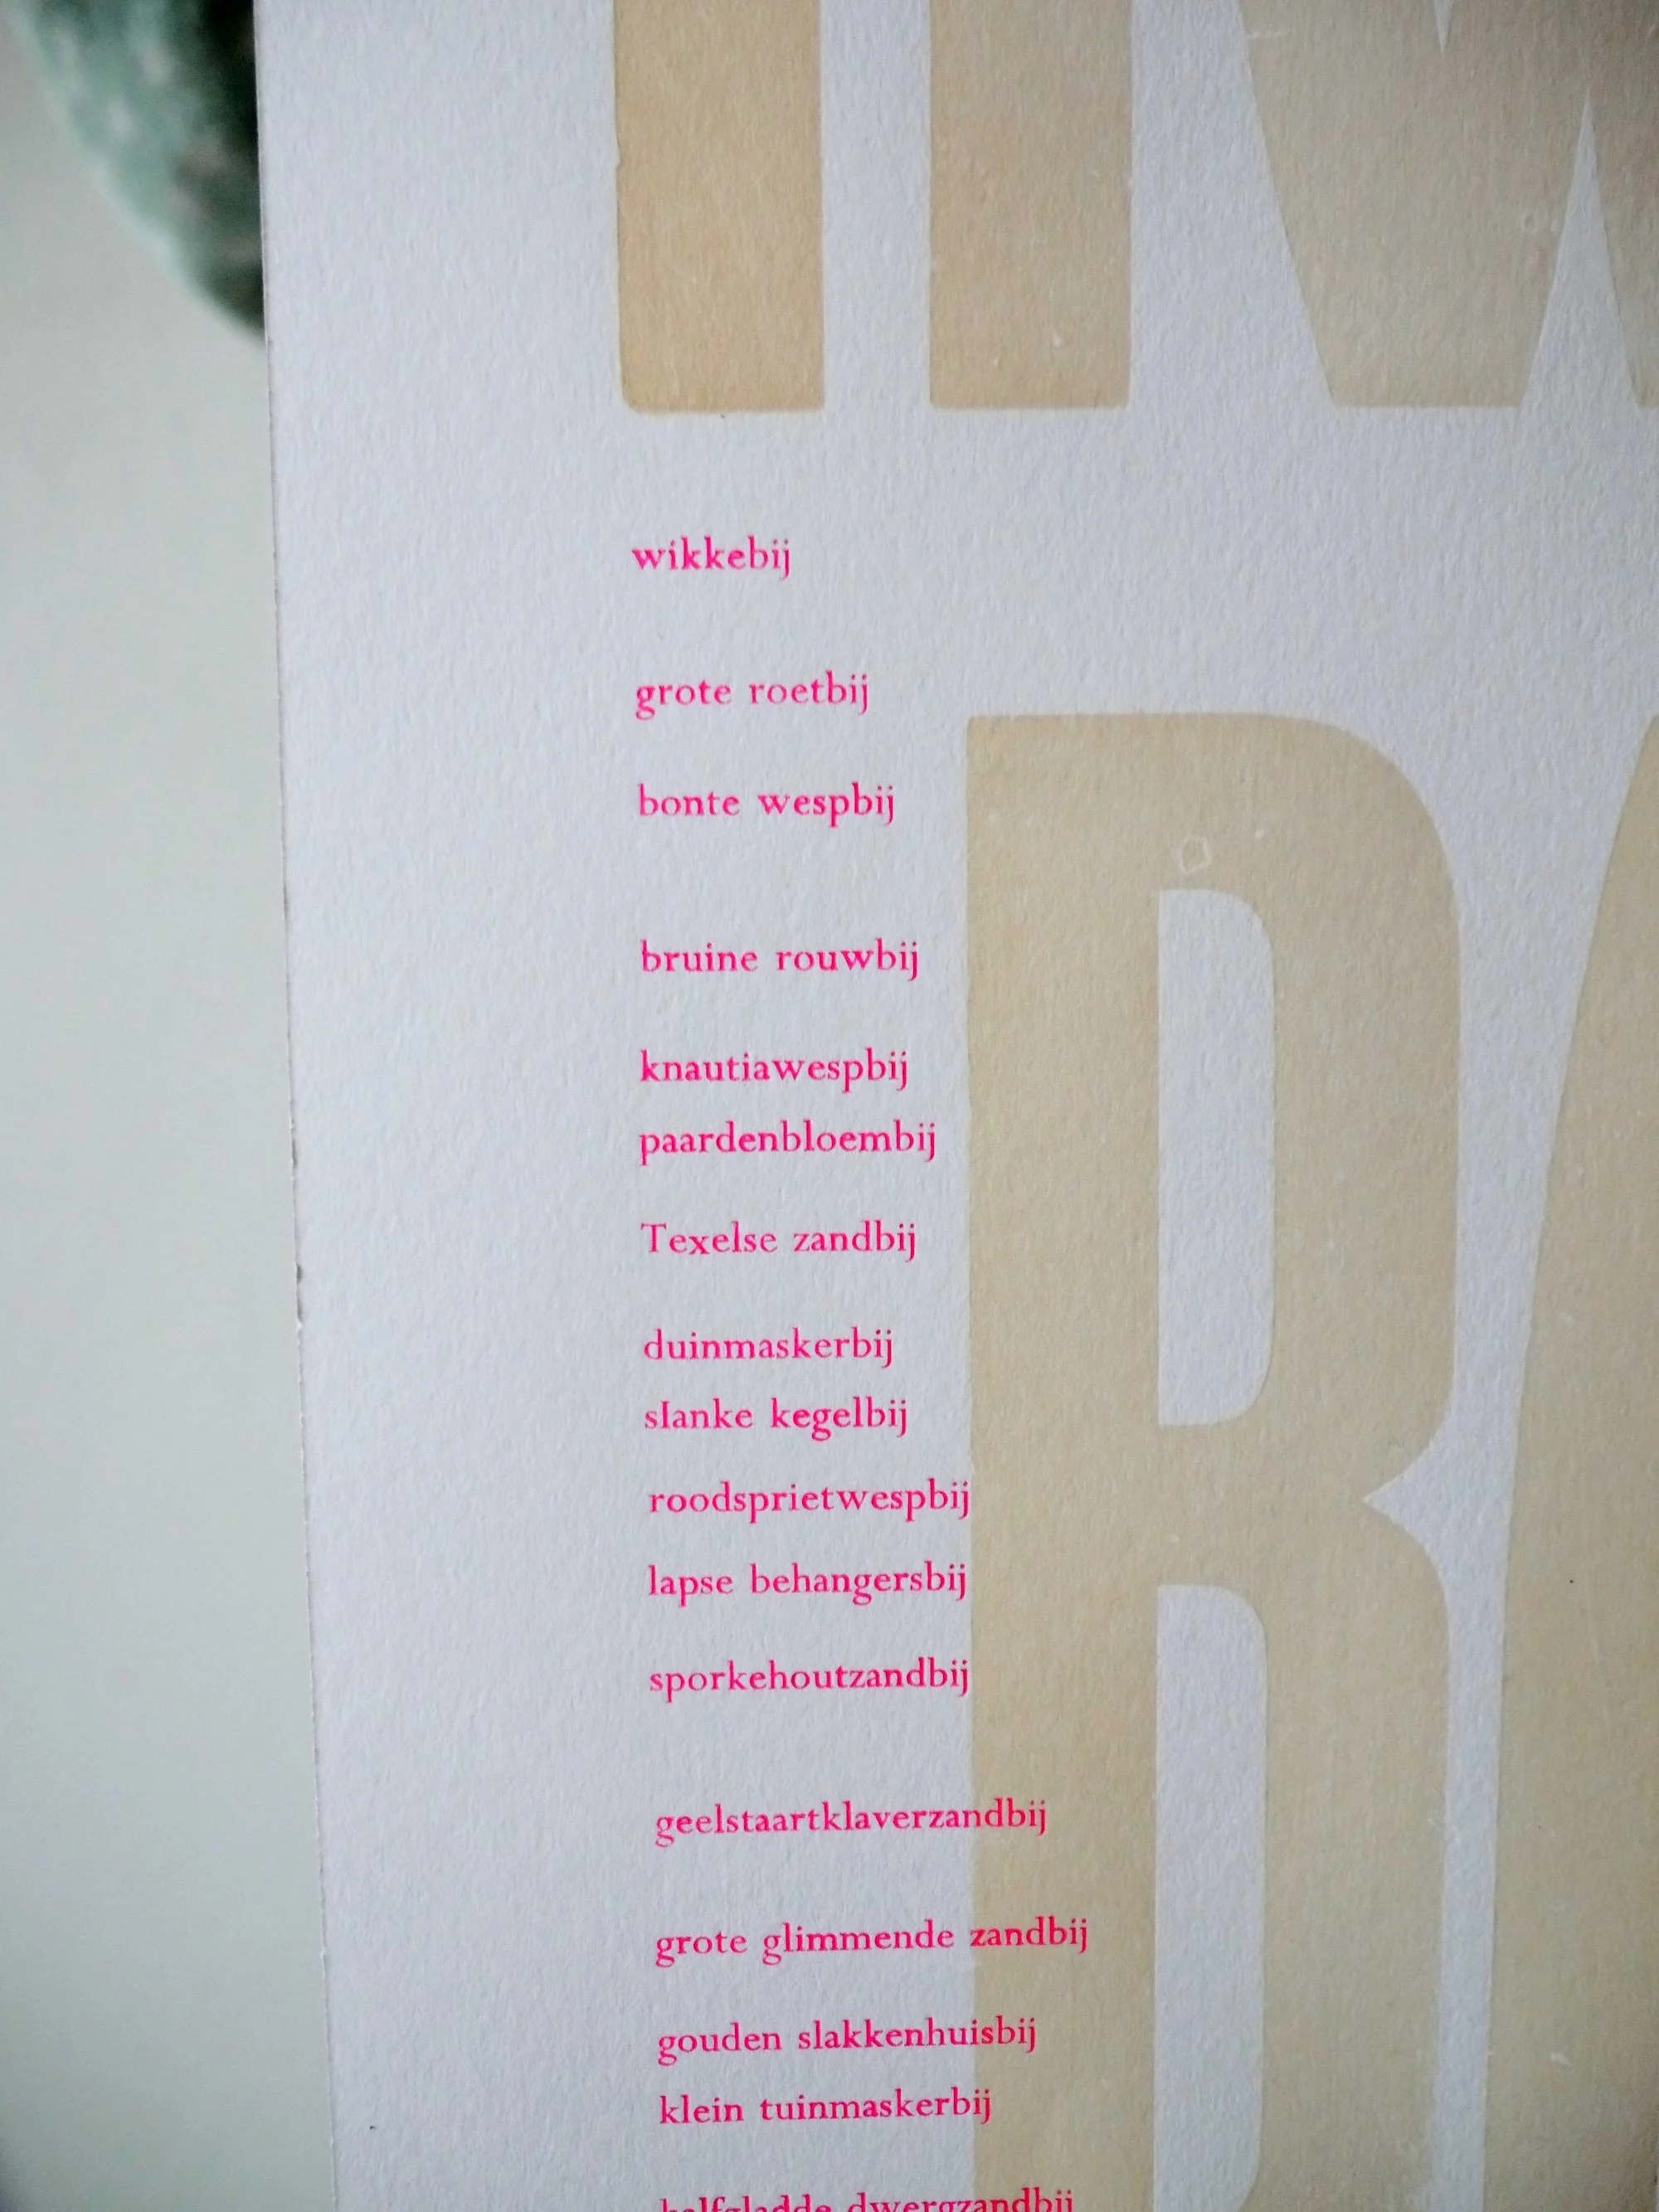 wikkebij
grote roetbij
bonte wespbij
bruine rouwbij
knautiawespbij
paardenbloembij
Texelse zandbij
duinmaskerbij
slanke kegelbij
roodsprietwespbij
lapse behangersbij
sporkehoutzandbij
geelstaartklaverzandbij
grote glimmende zandbij
gouden slakkenhuisbij
klein tuinmaskerbij
halfgladde dwergzandbij